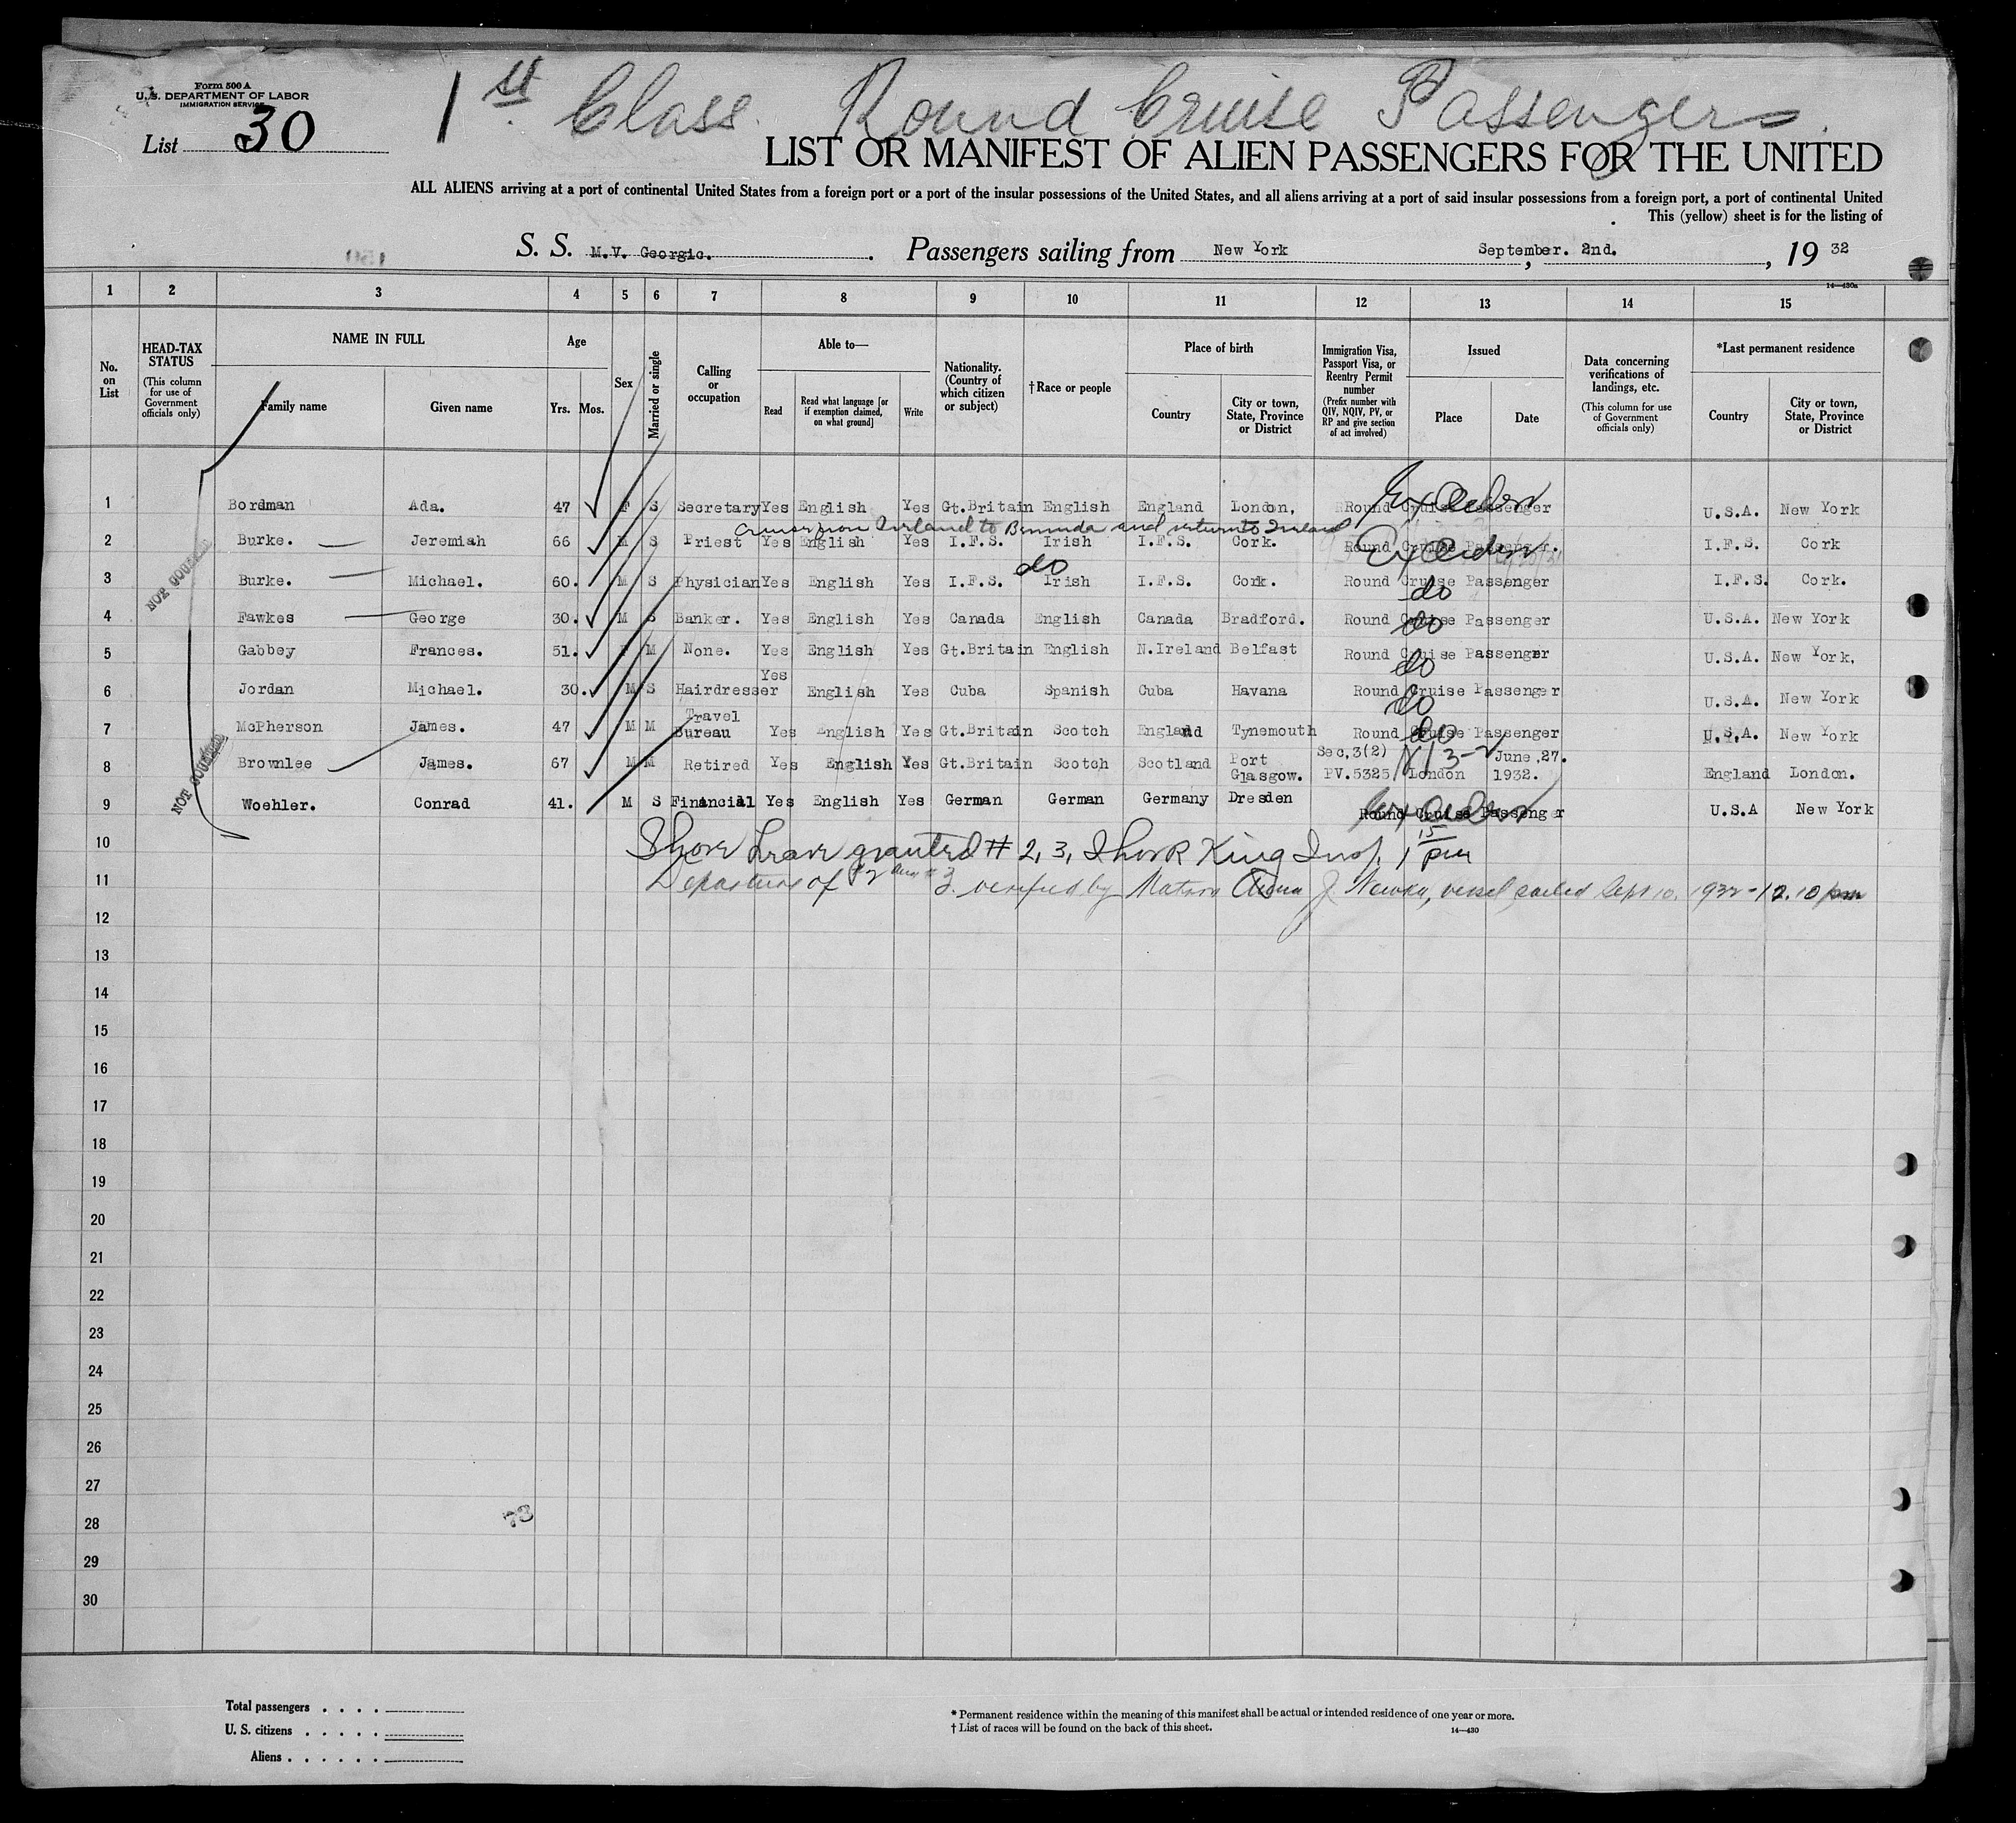 Form 500 A
U.S. DEPARTMENT OF LABOR
IMMIGRATION SERVICE
List 30
1st Class Round Cruise Passengers
LIST OR MANIFEST OF ALIEN PASSENGERS FOR THE UNITED
ALL ALIENS arriving at a port of continental United States from a foreign port or a port of the insular possessions of the United States, and all aliens arriving at a port of said insular possessions from a foreign port, a port of continental United
This (yellow) sheet is for the listing of
S. S. M.V. Georgic. Passengers sailing from New York September. 2nd. , 19 32
14-430a
1 2 3 4 5 6 7 8 9 10 11 12 13 14 15
No. on List
HEAD-TAX STATUS (This column for use of Government officials only)
NAME IN FULL
Family name Given name
Age
Yrs. Mos.
Sex
Married or single
Calling or occupation
Able to—
Read Read what language [or if exemption claimed, on what ground] Write
Nationality. (Country of which citizen or subject)
†Race or people
Place of birth
Country City or town, State, Province or District
Immigration Visa, Passport Visa, or Reentry Permit number (Prefix number with QIV, NQIV, PV, or RP and give section of act involved)
Issued
Place Date
Data concerning verifications of landings, etc. (This column for use of Government officials only)
*Last permanent residence
Country City or town, State, Province or District
1 Bordman Ada. 47 F S Secretary Yes English Yes Gt.Britain English England London, Round Cruise Passenger U.S.A. New York
Cruise from Ireland to Bermuda and return to Ireland
2 Burke. Jeremiah 66 M S Priest Yes English Yes I.F.S. Irish I.F.S. Cork. Round Cruise Passenger. I.F.S. Cork
do
3 Burke. Michael. 60. M S Physician Yes English Yes I.F.S. Irish I.F.S. Cork. Round Cruise Passenger do I.F.S. Cork.
4 Fawkes George 30. M S Banker. Yes English Yes Canada English Canada Bradford. Round Cruise Passenger do U.S.A. New York
5 Gabbey Frances. 51. F M None. Yes English Yes Gt.Britain English N.Ireland Belfast Round Cruise Passenger do U.S.A. New York,
6 Jordan Michael. 30. M S Hairdresser Yes English Yes Cuba Spanish Cuba Havana Round Cruise Passenger do U.S.A. New York
7 McPherson James. 47 M M Travel Bureau Yes English Yes Gt.Britain Scotch England Tynemouth Round Cruise Passenger do U.S.A. New York
8 Brownlee James. 67 M M Retired Yes English Yes Gt.Britain Scotch Scotland Port Glasgow. Sec,3(2) PV.5325 London June,27. 1932. England London.
9 Woehler. Conrad 41. M S Financial Yes English Yes German German Germany Dresden Round Cruise Passenger U.S.A New York
NOT COUNTED
NOT COUNTED
10 Shore Leave granted # 2, 3, King Insp. 1 15 pm
11 Departure of #2 and #3 verified by Matron J. vessel sailed Sept 10. 1932 - 12.10 pm
12
13
14
15
16
17
18
19
20
21
22
23
24
25
26
27
28
29
30
73
Total passengers . . . .
U. S. citizens . . . . .
Aliens . . . . . .
* Permanent residence within the meaning of this manifest shall be actual or intended residence of one year or more.
† List of races will be found on the back of this sheet. 14—430